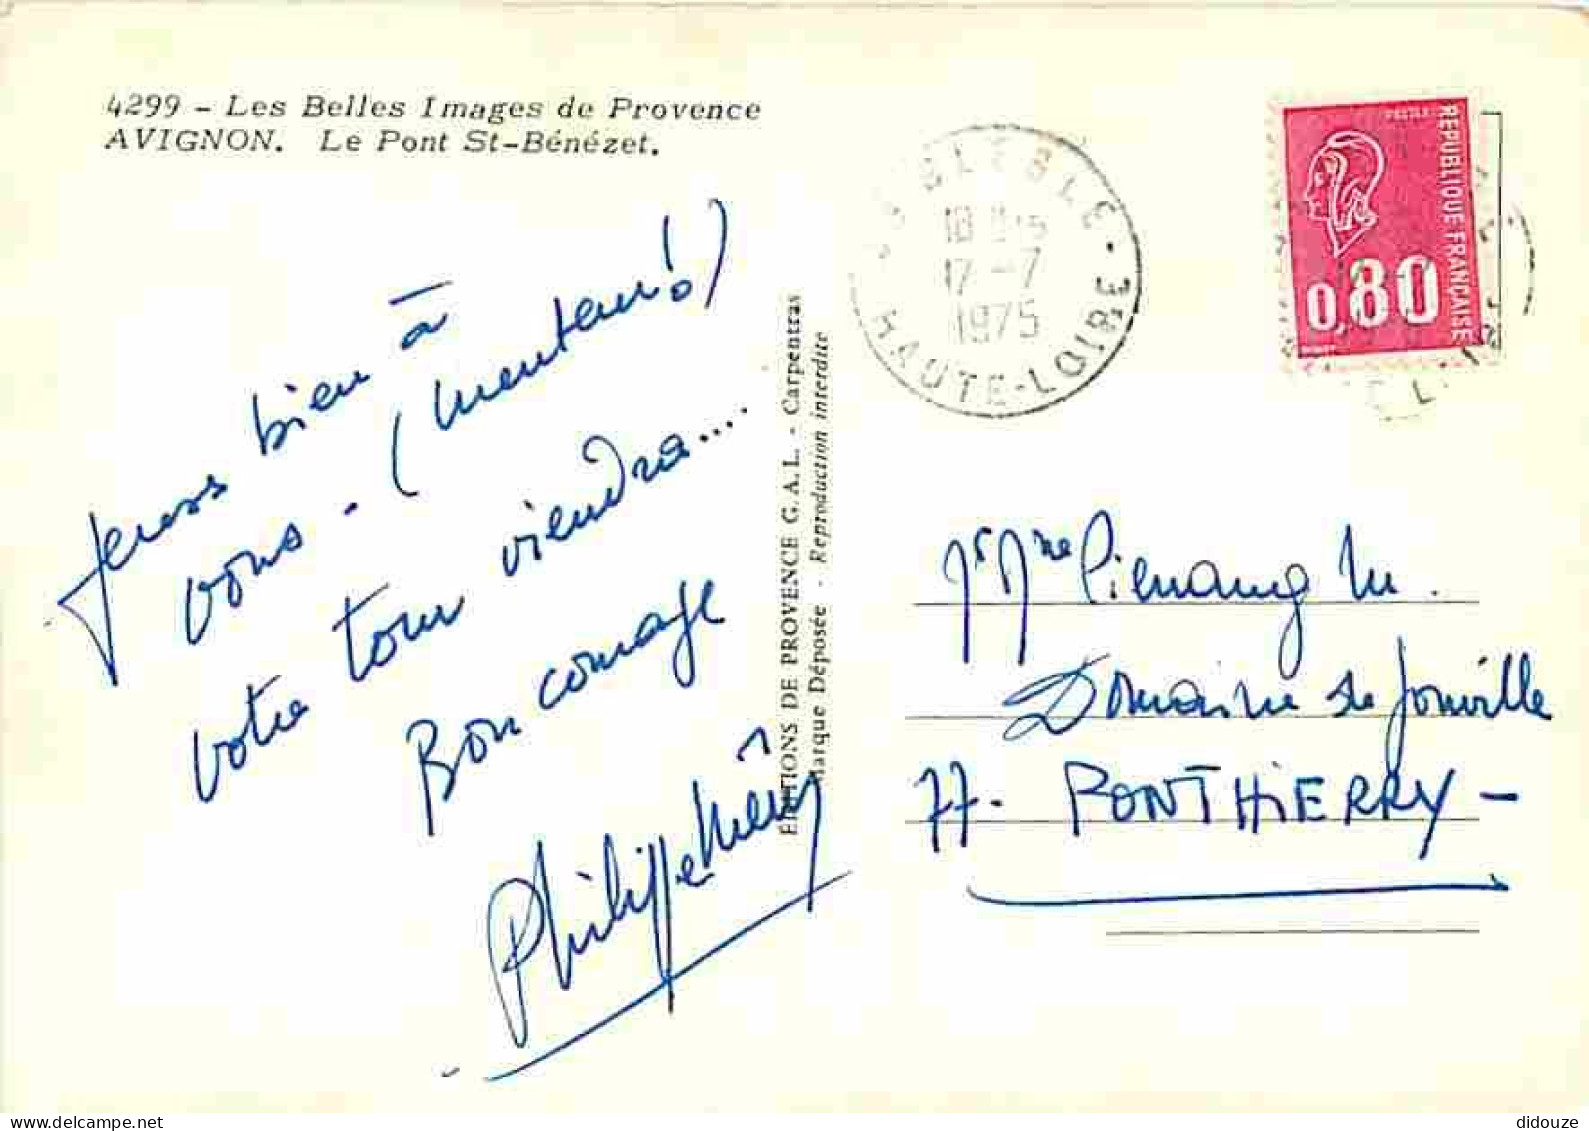 4299 - Les Belles Images de Provence
AVIGNON. Le Pont St-Bénézet.
bien à
vous. (menteur!)
votre tour viendra....
Bon courage
Philippe
ÉDITIONS DE PROVENCE G.A.L. - Carpentras
Marque Déposée - Reproduction interdite
HAUTE-LOIRE
17-7
1975
POSTES
REPUBLIQUE FRANÇAISE
0,80
Mr Mme
Domaine de Jonville
77. PONTHIERRY -
didouze